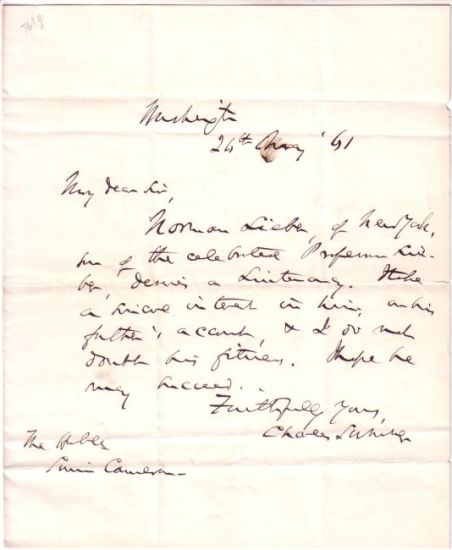 7619
Washington
24th May '61
My dear Sir,
Norman Lieber, of New York,
son of the celebrated Professor Lie-
ber, desires a Lieutenancy. I take
a sincere interest in him, on his
father's account, & I do not
doubt his fitness. I hope he
may succeed.
Faithfully Yours,
Charles Sumner
The Hon'ble
Simon Cameron